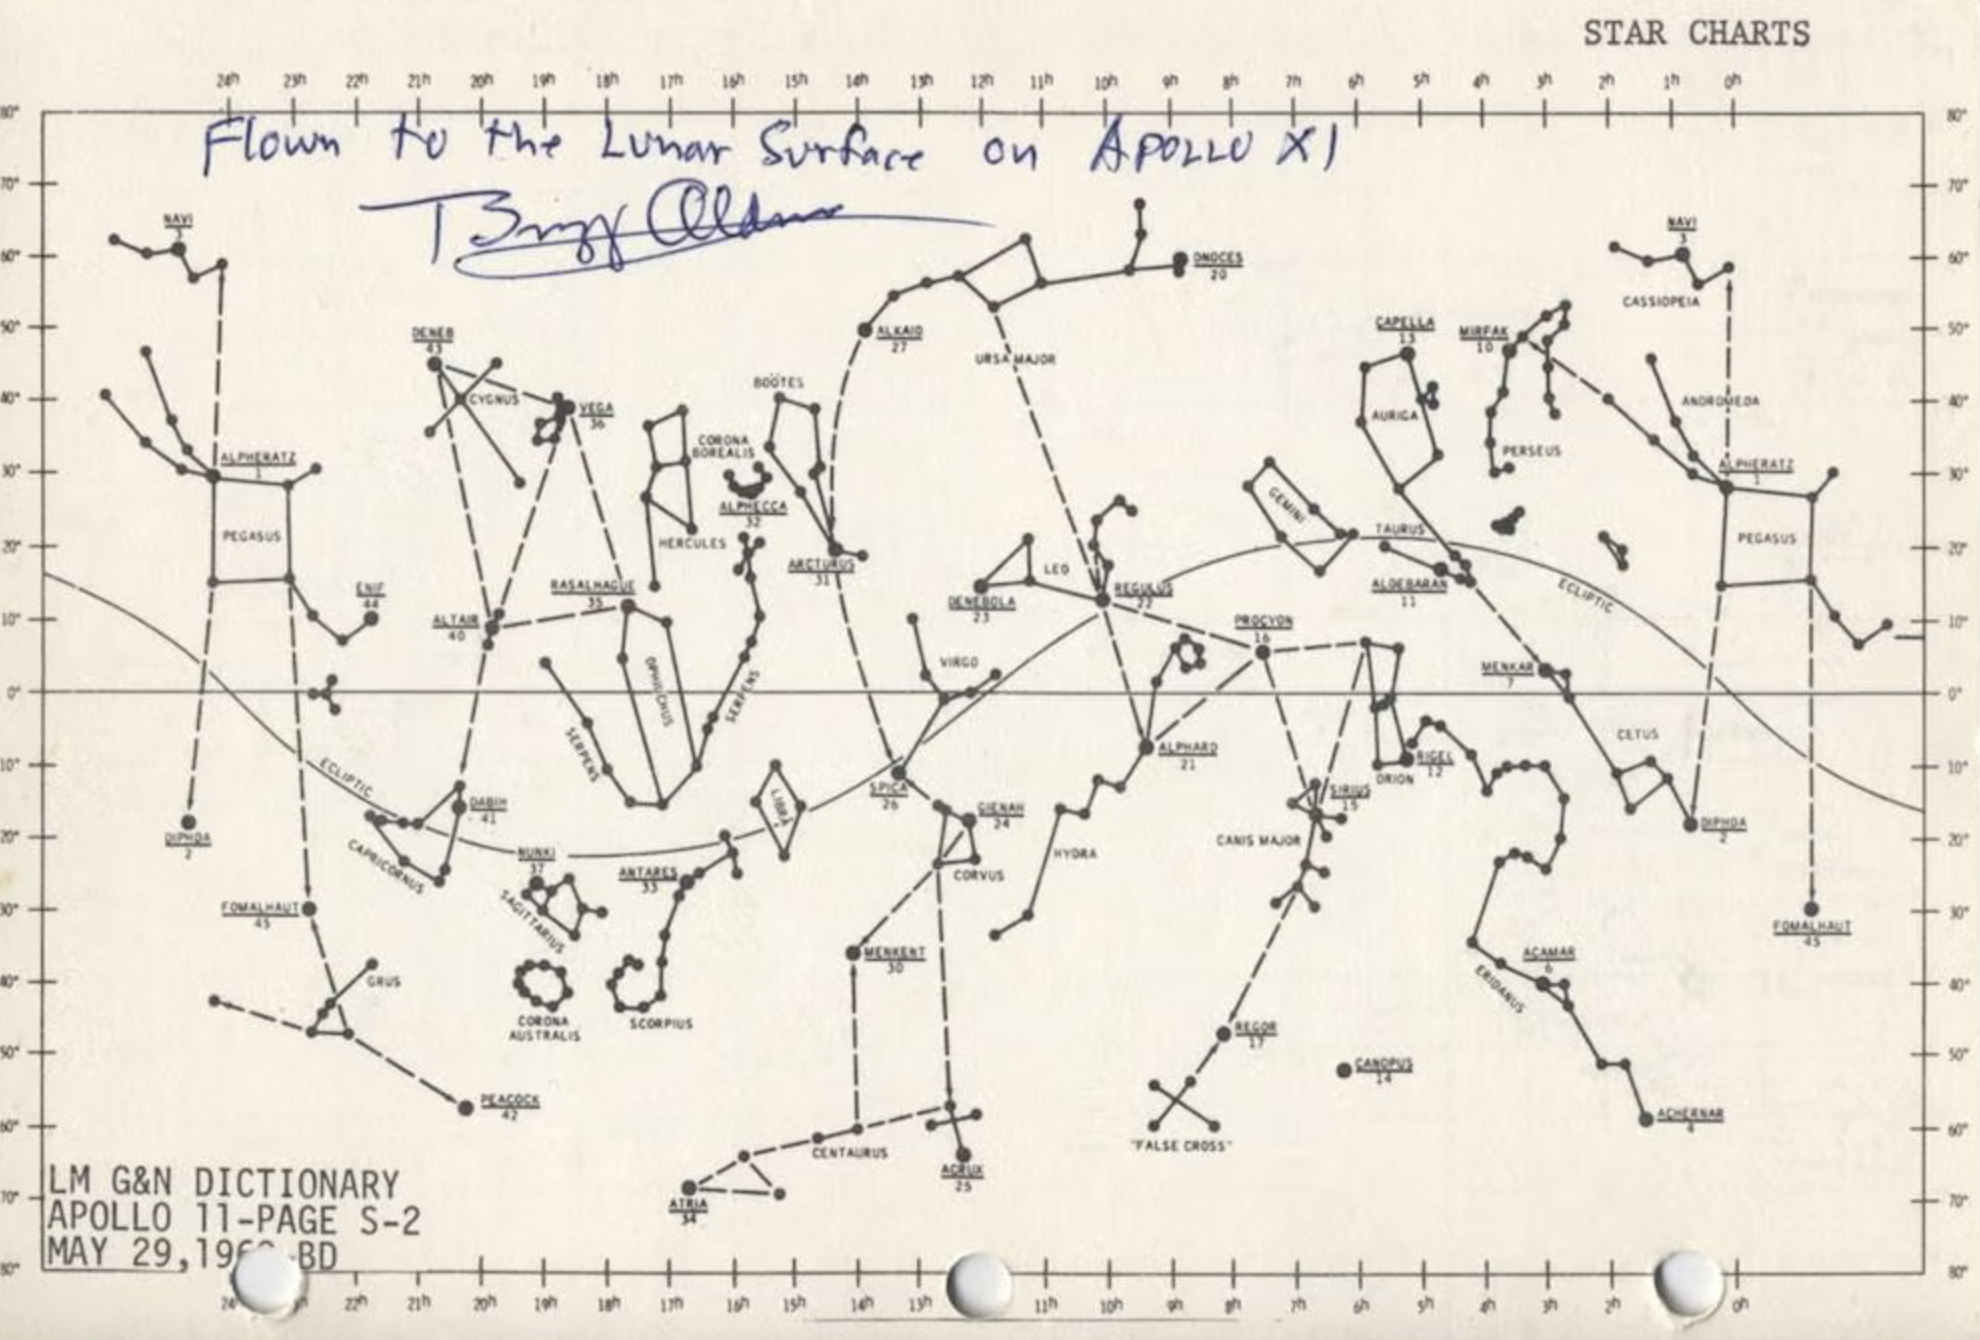 STAR CHARTS
24h 23h 22h 21h 20h 19h 18h 17h 16h 15h 14h 13h 12h 11h 10h 9h 8h 7h 6h 5h 4h 3h 2h 1h 0h
80° 80°
Flown to the Lunar Surface on APOLLO XI
70° 70°
Buzz Aldrin
NAVI
3
NAVI
3
60° 60°
DNOCES
20
CASSIOPEIA
50° 50°
DENEB
43
ALKAID
27
URSA MAJOR
CAPELLA
13
MIRFAK
10
BOÖTES
40° 40°
CYGNUS
VEGA
36
AURIGA
ANDROMEDA
CORONA
BOREALIS
PERSEUS
30° 30°
ALPHERATZ
1
ALPHERATZ
1
ALPHECCA
32
GEMINI
PEGASUS
HERCULES
TAURUS
PEGASUS
20° 20°
ARCTURUS
31
LEO
RASALHAGUE
35
DENEBOLA
23
REGULUS
22
ALDEBARAN
11
ECLIPTIC
ENIF
44
10° 10°
ALTAIR
40
PROCYON
16
VIRGO
MENKAR
7
OPHIUCHUS
SERPENS
0° 0°
SERPENS
ALPHARD
21
CETUS
RIGEL
12
ORION
10° 10°
ECLIPTIC
SPICA
26
LIBRA
SIRIUS
15
DABIH
41
GIENAH
24
DIPHDA
2
DIPHDA
2
20° 20°
CANIS MAJOR
CAPRICORNUS
NUNKI
37
ANTARES
33
CORVUS
HYDRA
SAGITTARIUS
FOMALHAUT
45
30° 30°
FOMALHAUT
45
MENKENT
30
ACAMAR
6
GRUS
40° 40°
ERIDANUS
CORONA
AUSTRALIS
SCORPIUS
REGOR
17
50° 50°
CANOPUS
14
PEACOCK
42
ACHERNAR
4
60° 60°
"FALSE CROSS"
CENTAURUS
ACRUX
25
LM G&N DICTIONARY
70° 70°
ATRIA
34
APOLLO 11-PAGE S-2
MAY 29, BD
80° 80°
22h 21h 20h 19h 18h 17h 16h 15h 14h 13h 11h 10h 9h 8h 7h 6h 5h 4h 3h 2h 0h